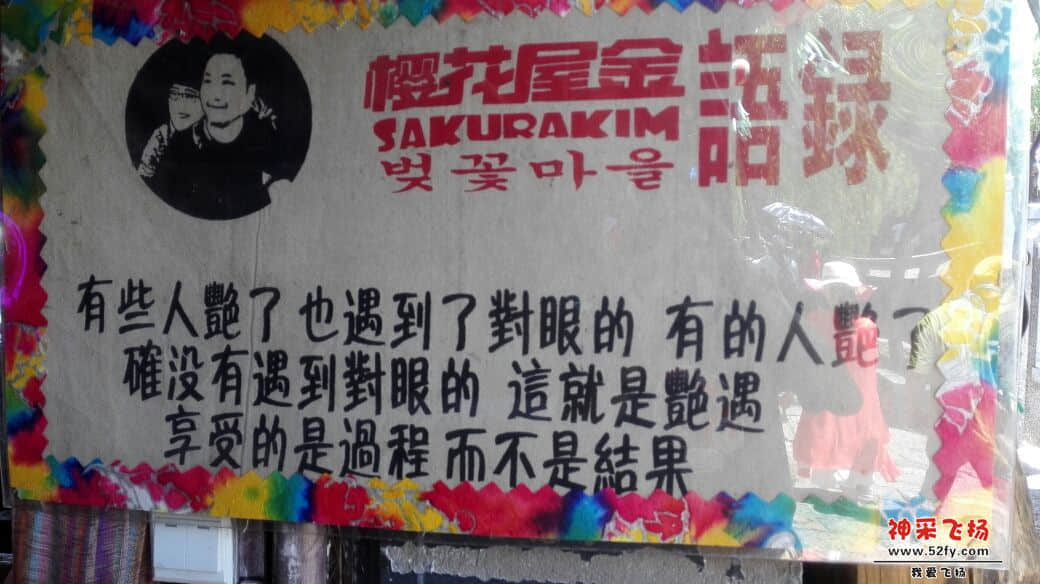 樱花屋金 語録
SAKURAKIM
벚꽃마을
有些人艷了也遇到了對眼的 有的人艷了
確没有遇到對眼的 這就是艷遇
享受的是過程而不是結果
神采飞扬
www.52fy.com
我爱飞扬